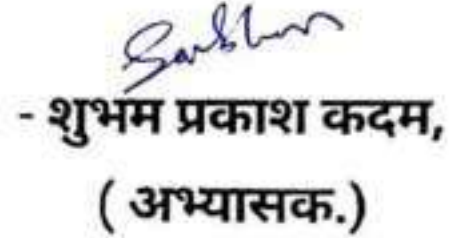 - शुभम प्रकाश कदम,
( अभ्यासक.)